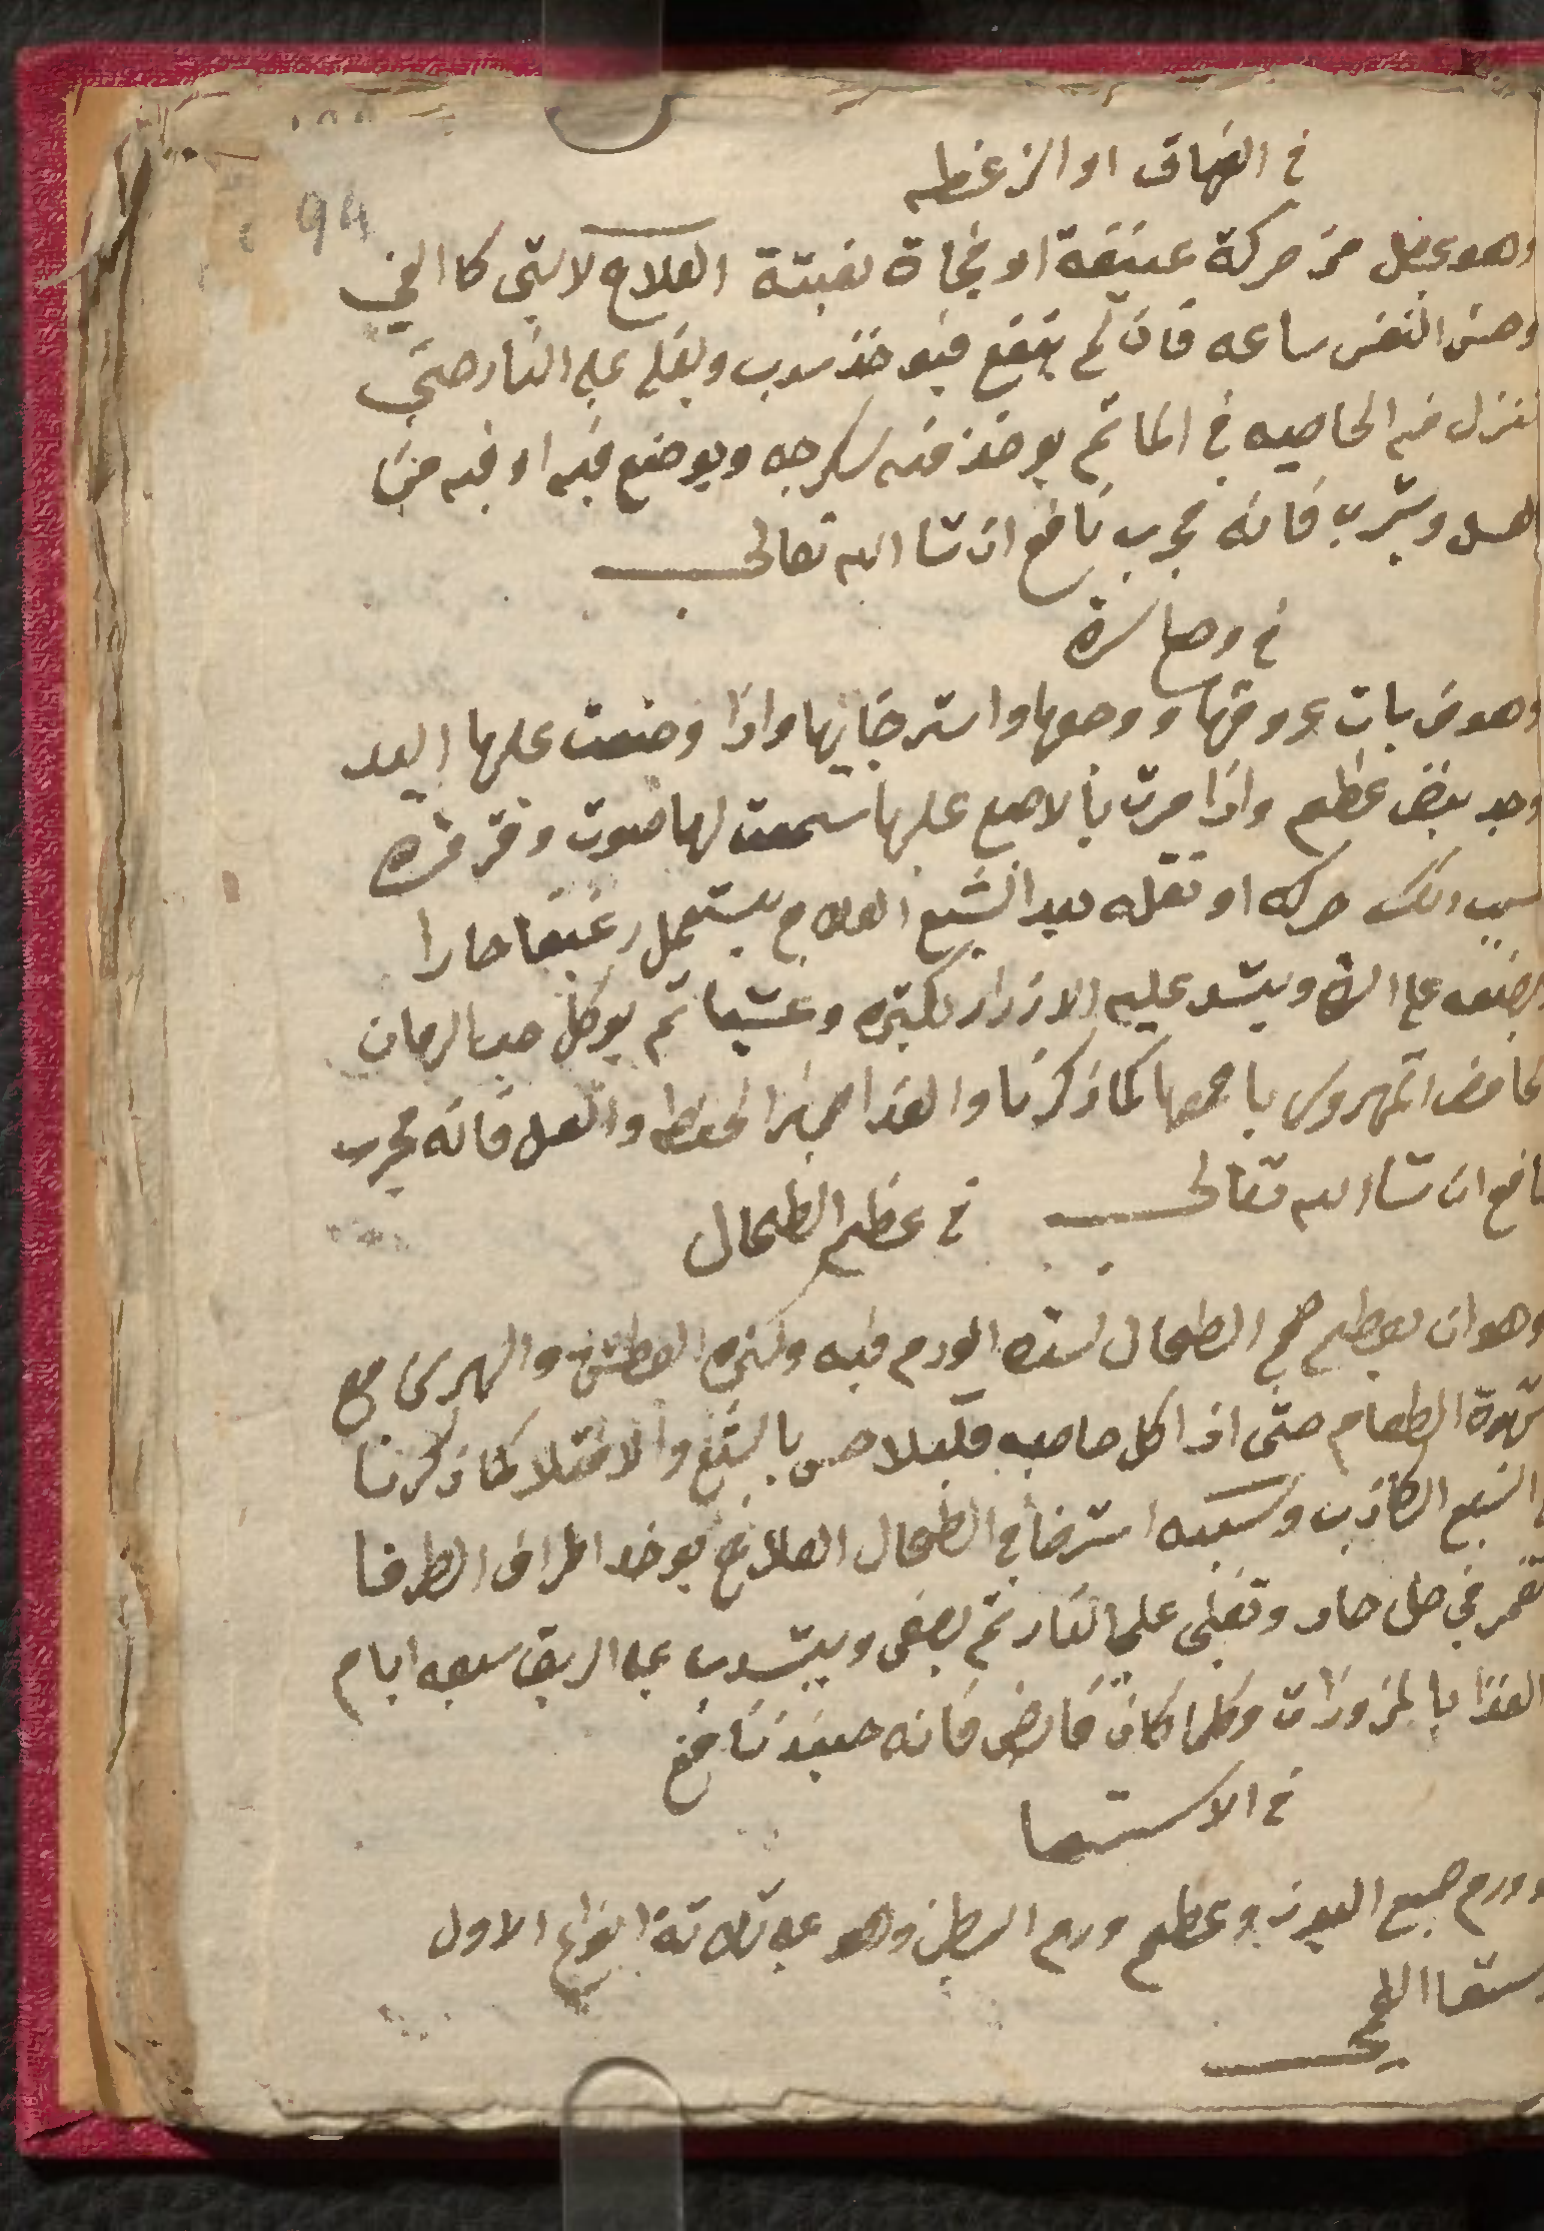 94
في الفهاق او الزغطه
وهو يحصل من حركة عنيفة او فجاة بغبتة العلاج لا شي كا القي
وحبس النفس ساعه فان لم ينفع فيوخذ سدب ويغلي علي النار حتي
تنزل فيه الخاصيه في الما تم يوخذ منه سكرجه ويوضع فيه اوقيه من
العسل ويشرب فانه مجرب نافع ان شا الله تعالى
في وجع السرة
وهو من بات عروقها ووجعها واسترخايها واذا وضعت عليها اليد
وجد نبض عظيم واذا مرت بالاصبع عليها سمعت لها صوت وقرقره
سبب دلك حركه او نقله بعد الشبع العلاج يستعمل رغيفا حارا
يضعه على السرة ويشد عليه الازرار بكتره وعشيا تم يوكل حب الرمان
الحامض المهروس باجمعها كما ذكرنا والغدا خبز الحنطه والعسل فانه مجرب
نافع ان شا الله تعالى
في عظم الطحال
وهو ان يعظم حجم الطحال لشده الورم فيه وكثرة العطش والهرش مع
شهوة الطعام حتى اذا اكل صاحبه قليلا حس بالشبع والامتلا كما ذكرنا
في الشبع الكاذب وسببه استرخا في الطحال العلاج يوخد اطراف الطرفا
تغمر في خل حاد وتغلى على النار تم يصفى ويشرب علي الريق سبعه ايام
الغدا بالمزورات وكلما كان قابض فانه حينيذ نافع
في الاستسقا
وورم جميع البدن وعظم ورم البطن وهو علي تلاتة انواع الاول
استسقا اللحمي